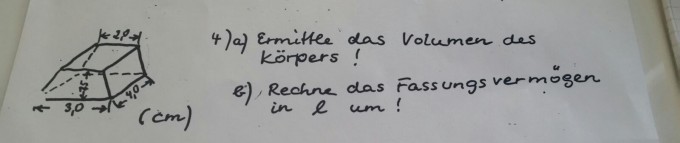 2,0
4)a) Ermittle das Volumen des
Körpers !
b) Rechne das Fassungsvermögen
in l um !
4,0
3,0
(cm)